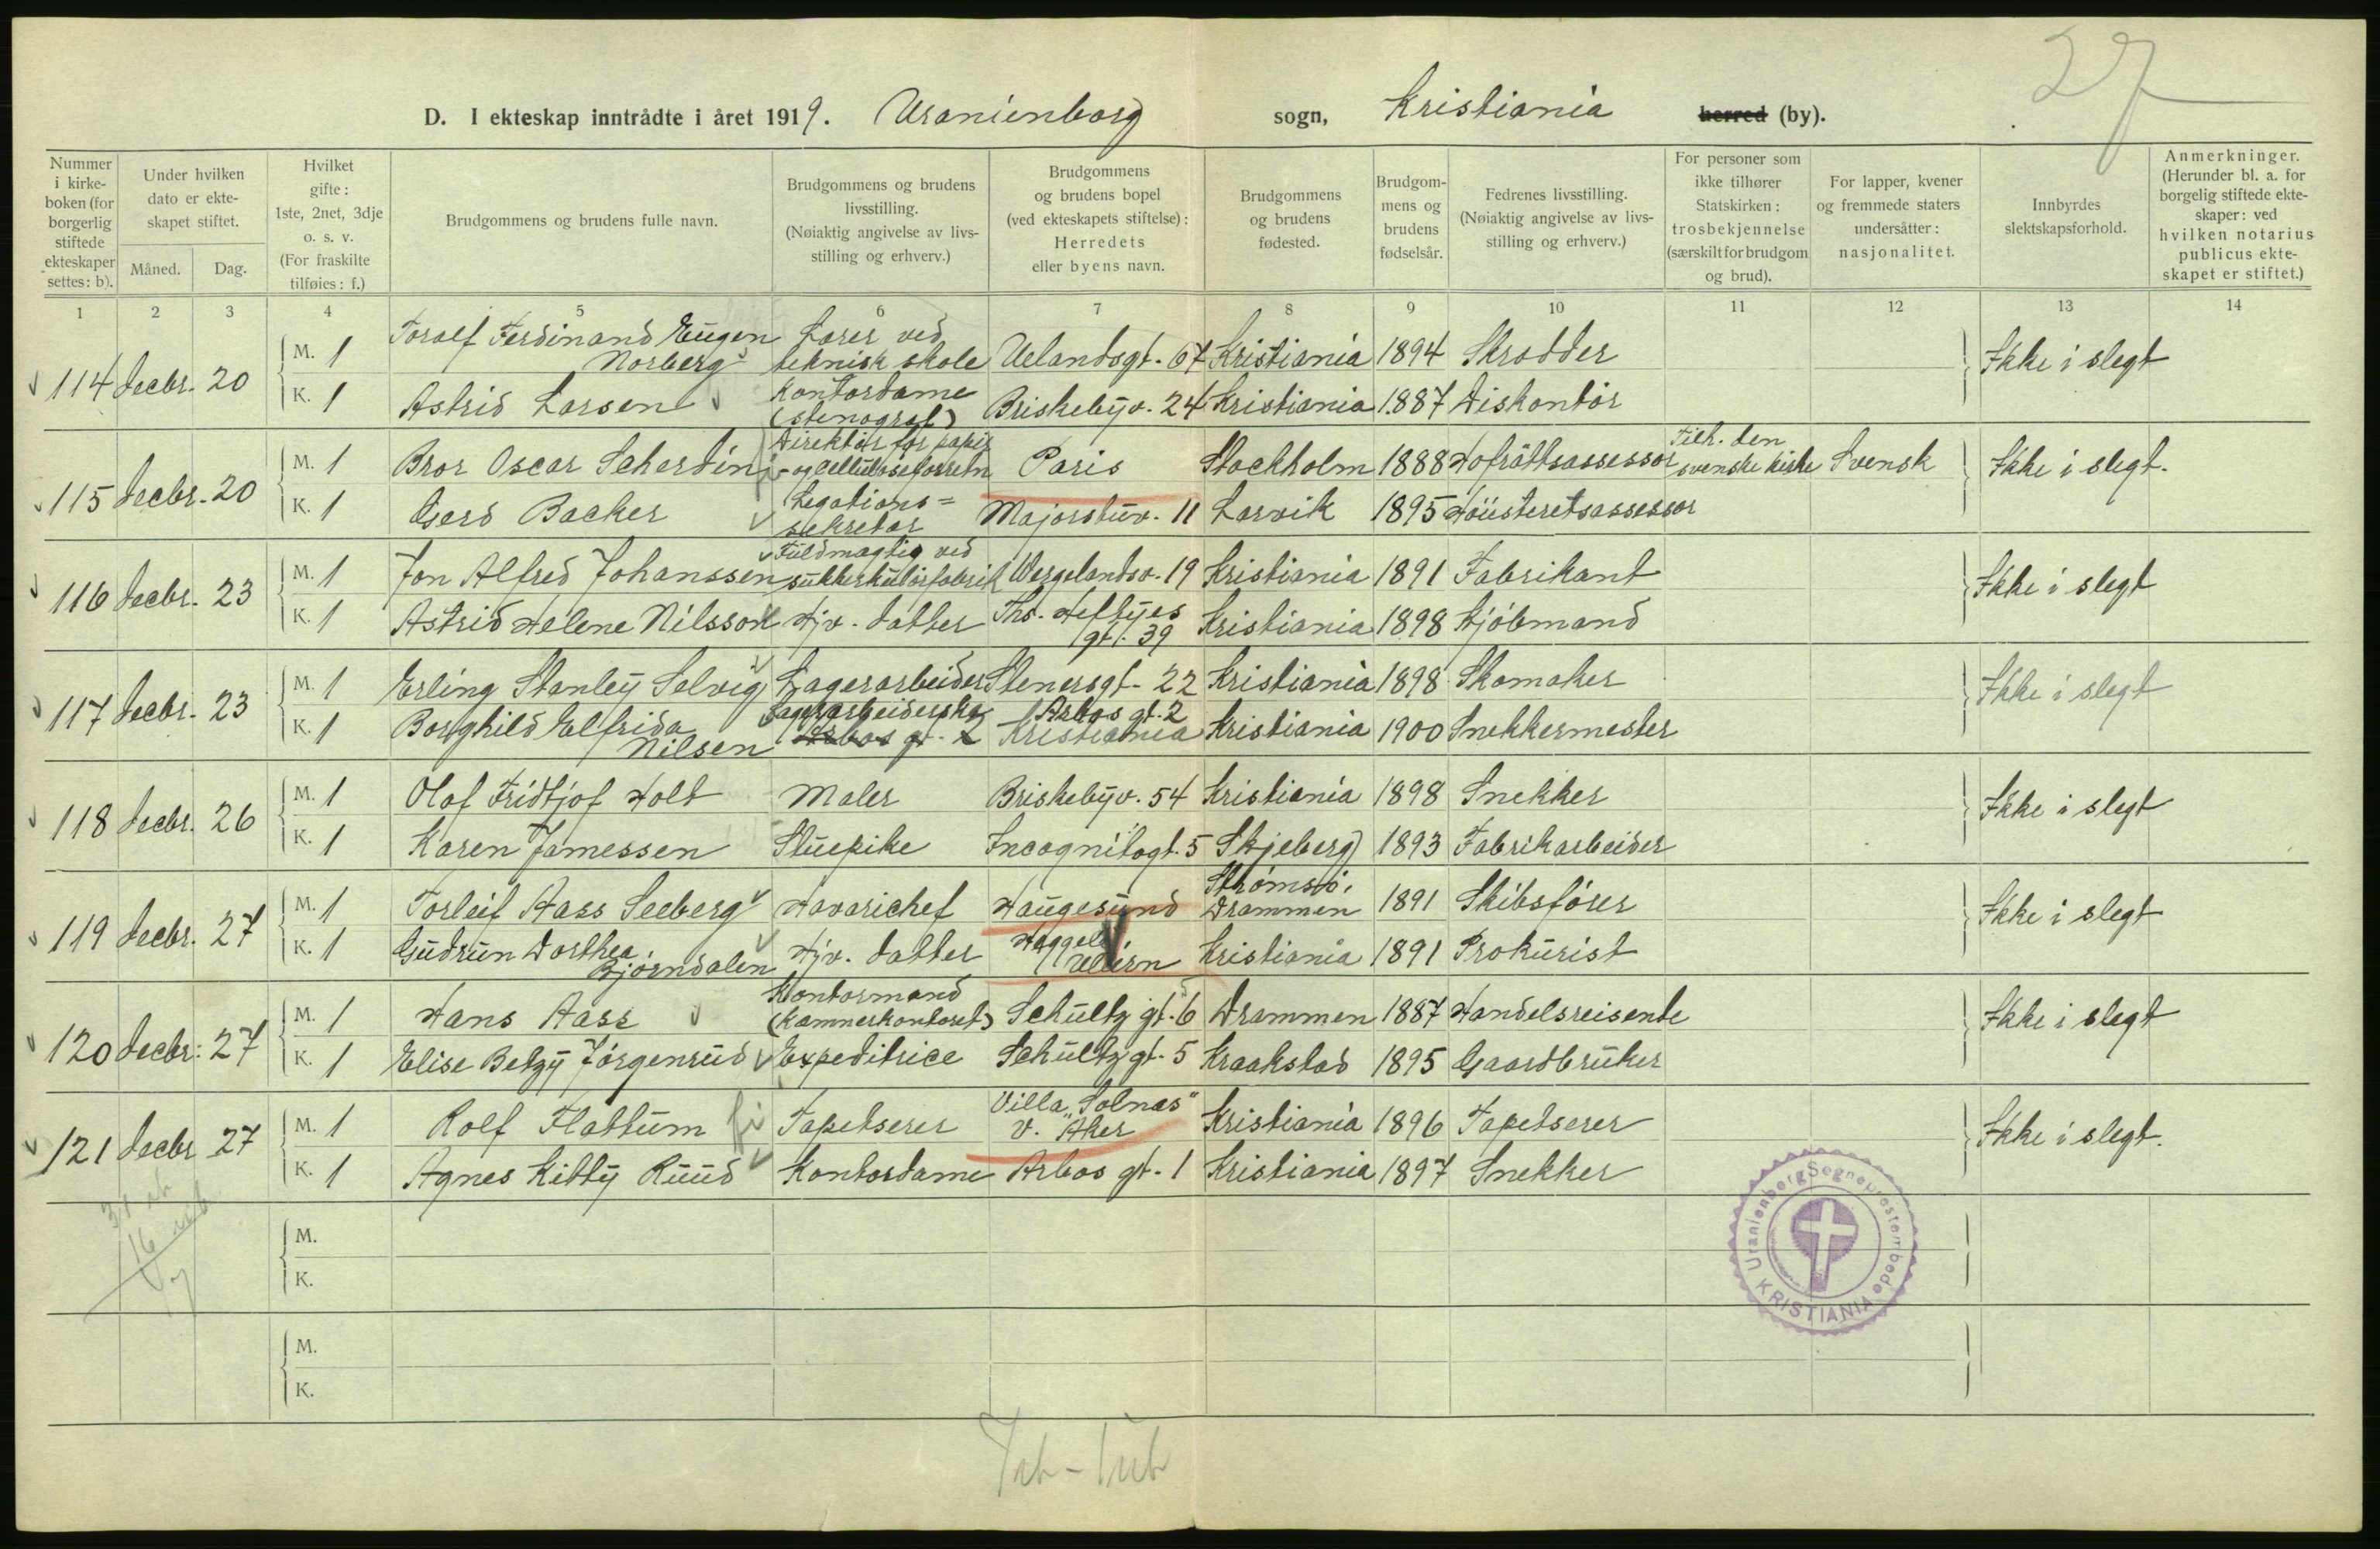 27
D. I ekteskap inntrådte i året 1919. Uranienborg sogn, Kristiania herred (by).
Nummer i kirke-boken (for borgerlig stiftede ekteskaper settes: b).
Under hvilken dato er ekte-skapet stiftet.
Måned. Dag.
Hvilket gifte: 1ste, 2net, 3dje o. s. v. (For fraskilte tilføies: f.)
Brudgommens og brudens fulle navn.
Brudgommens og brudens livsstilling. (Nøiaktig angivelse av livs-stilling og erhverv.)
Brudgommens og brudens bopel (ved ekteskapets stiftelse): Herredets eller byens navn.
Brudgommens og brudens fødested.
Brudgom-mens og brudens fødselsår.
Fedrenes livsstilling. (Nøiaktig angivelse av livs-stilling og erhverv.)
For personer som ikke tilhører Statskirken: trosbekjennelse (særskilt for brudgom og brud).
For lapper, kvener og fremmede staters undersåtter: nasjonalitet.
Innbyrdes slektskapsforhold.
Anmerkninger. (Herunder bl. a. for borgelig stiftede ekte-skaper: ved hvilken notarius publicus ekte-skapet er stiftet.)
1 2 3 4 5 6 7 8 9 10 11 12 13 14
114 Decbr. 20 M. 1 Toralf Ferdinand Eugen Norberg Lærer ved teknisk skole Uelandsgt. 67 Kristiania 1894 Skrædder Ikke i slegt
K. 1 Astrid Larsen Kontordame (stenograf) Briskebyv. 24 Kristiania 1887 Diskontør
115 Decbr. 20 M. 1 Bror Oscar Scherdin Direktør for papir- og celluloseforretn Paris Stockholm 1888 Hofrättsassessor Tilh. den svenske kirke Svensk Ikke i slegt.
K. 1 Gerd Backer Legations=sekretær Majorstuv. 11 Larvik 1895 Høiesteretsassessor
116 Decbr. 23 M. 1 Jon Alfred Johanssen Fuldmægtig ved sukkerkulørfabrik Wergelandsv. 19 Kristiania 1891 Fabrikant Ikke i slegt
K. 1 Astrid Helene Nilsson Hjv. datter Ths. Heftyes gt. 39 Kristiania 1898 Kjøbmand
117 Decbr. 23 M. 1 Erling Stanley Selvig Lagerarbeider Stenersgt. 22 Kristiania 1898 Skomaker Ikke i slegt
K. 1 Borghild Elfrida Nilsen Lagerarbeiderske Arbos gt. 2 Arbos gt. 2 Kristiania Kristiania 1900 Snekkermester
118 Decbr. 26 M. 1 Olaf Fridtjof Holt Maler Briskebyv. 54 Kristiania 1898 Snekker Ikke i slegt
K. 1 Karen Jamessen Stuepike Incognitogt. 5 Skjeberg 1893 Fabrikarbeider
119 Decbr. 27 M. 1 Torleif Aass Seeberg Havarichef Haugesund Strømsø, Drammen 1891 Skibsfører Ikke i slegt
K. 1 Gudrun Dorthea Bjørndalen Hjv. datter Kristiania 1891 Prokurist
120 Decbr: 27 M. 1 Hans Aass Kontormand (Kæmnerkontoret) Schultz gt. 6 Drammen 1887 Handelsreisende Ikke i slegt
K. 1 Elise Betzy Jørgensrud Expeditrice Schultz gt. 5 Kraakstad 1895 Gaardbruker
121 Decbr 27 M. 1 Rolf Flattum Tapetserer Villa "Solnæs" v. Aker Kristiania 1896 Tapetserer Ikke i slegt.
K. 1 Agnes Kitty Ruud Kontordame Arbos gt. 1 Kristiania 1897 Snekker
M.
K.
M.
K.
Uranienborg Sogneprestembede KRISTIANIA